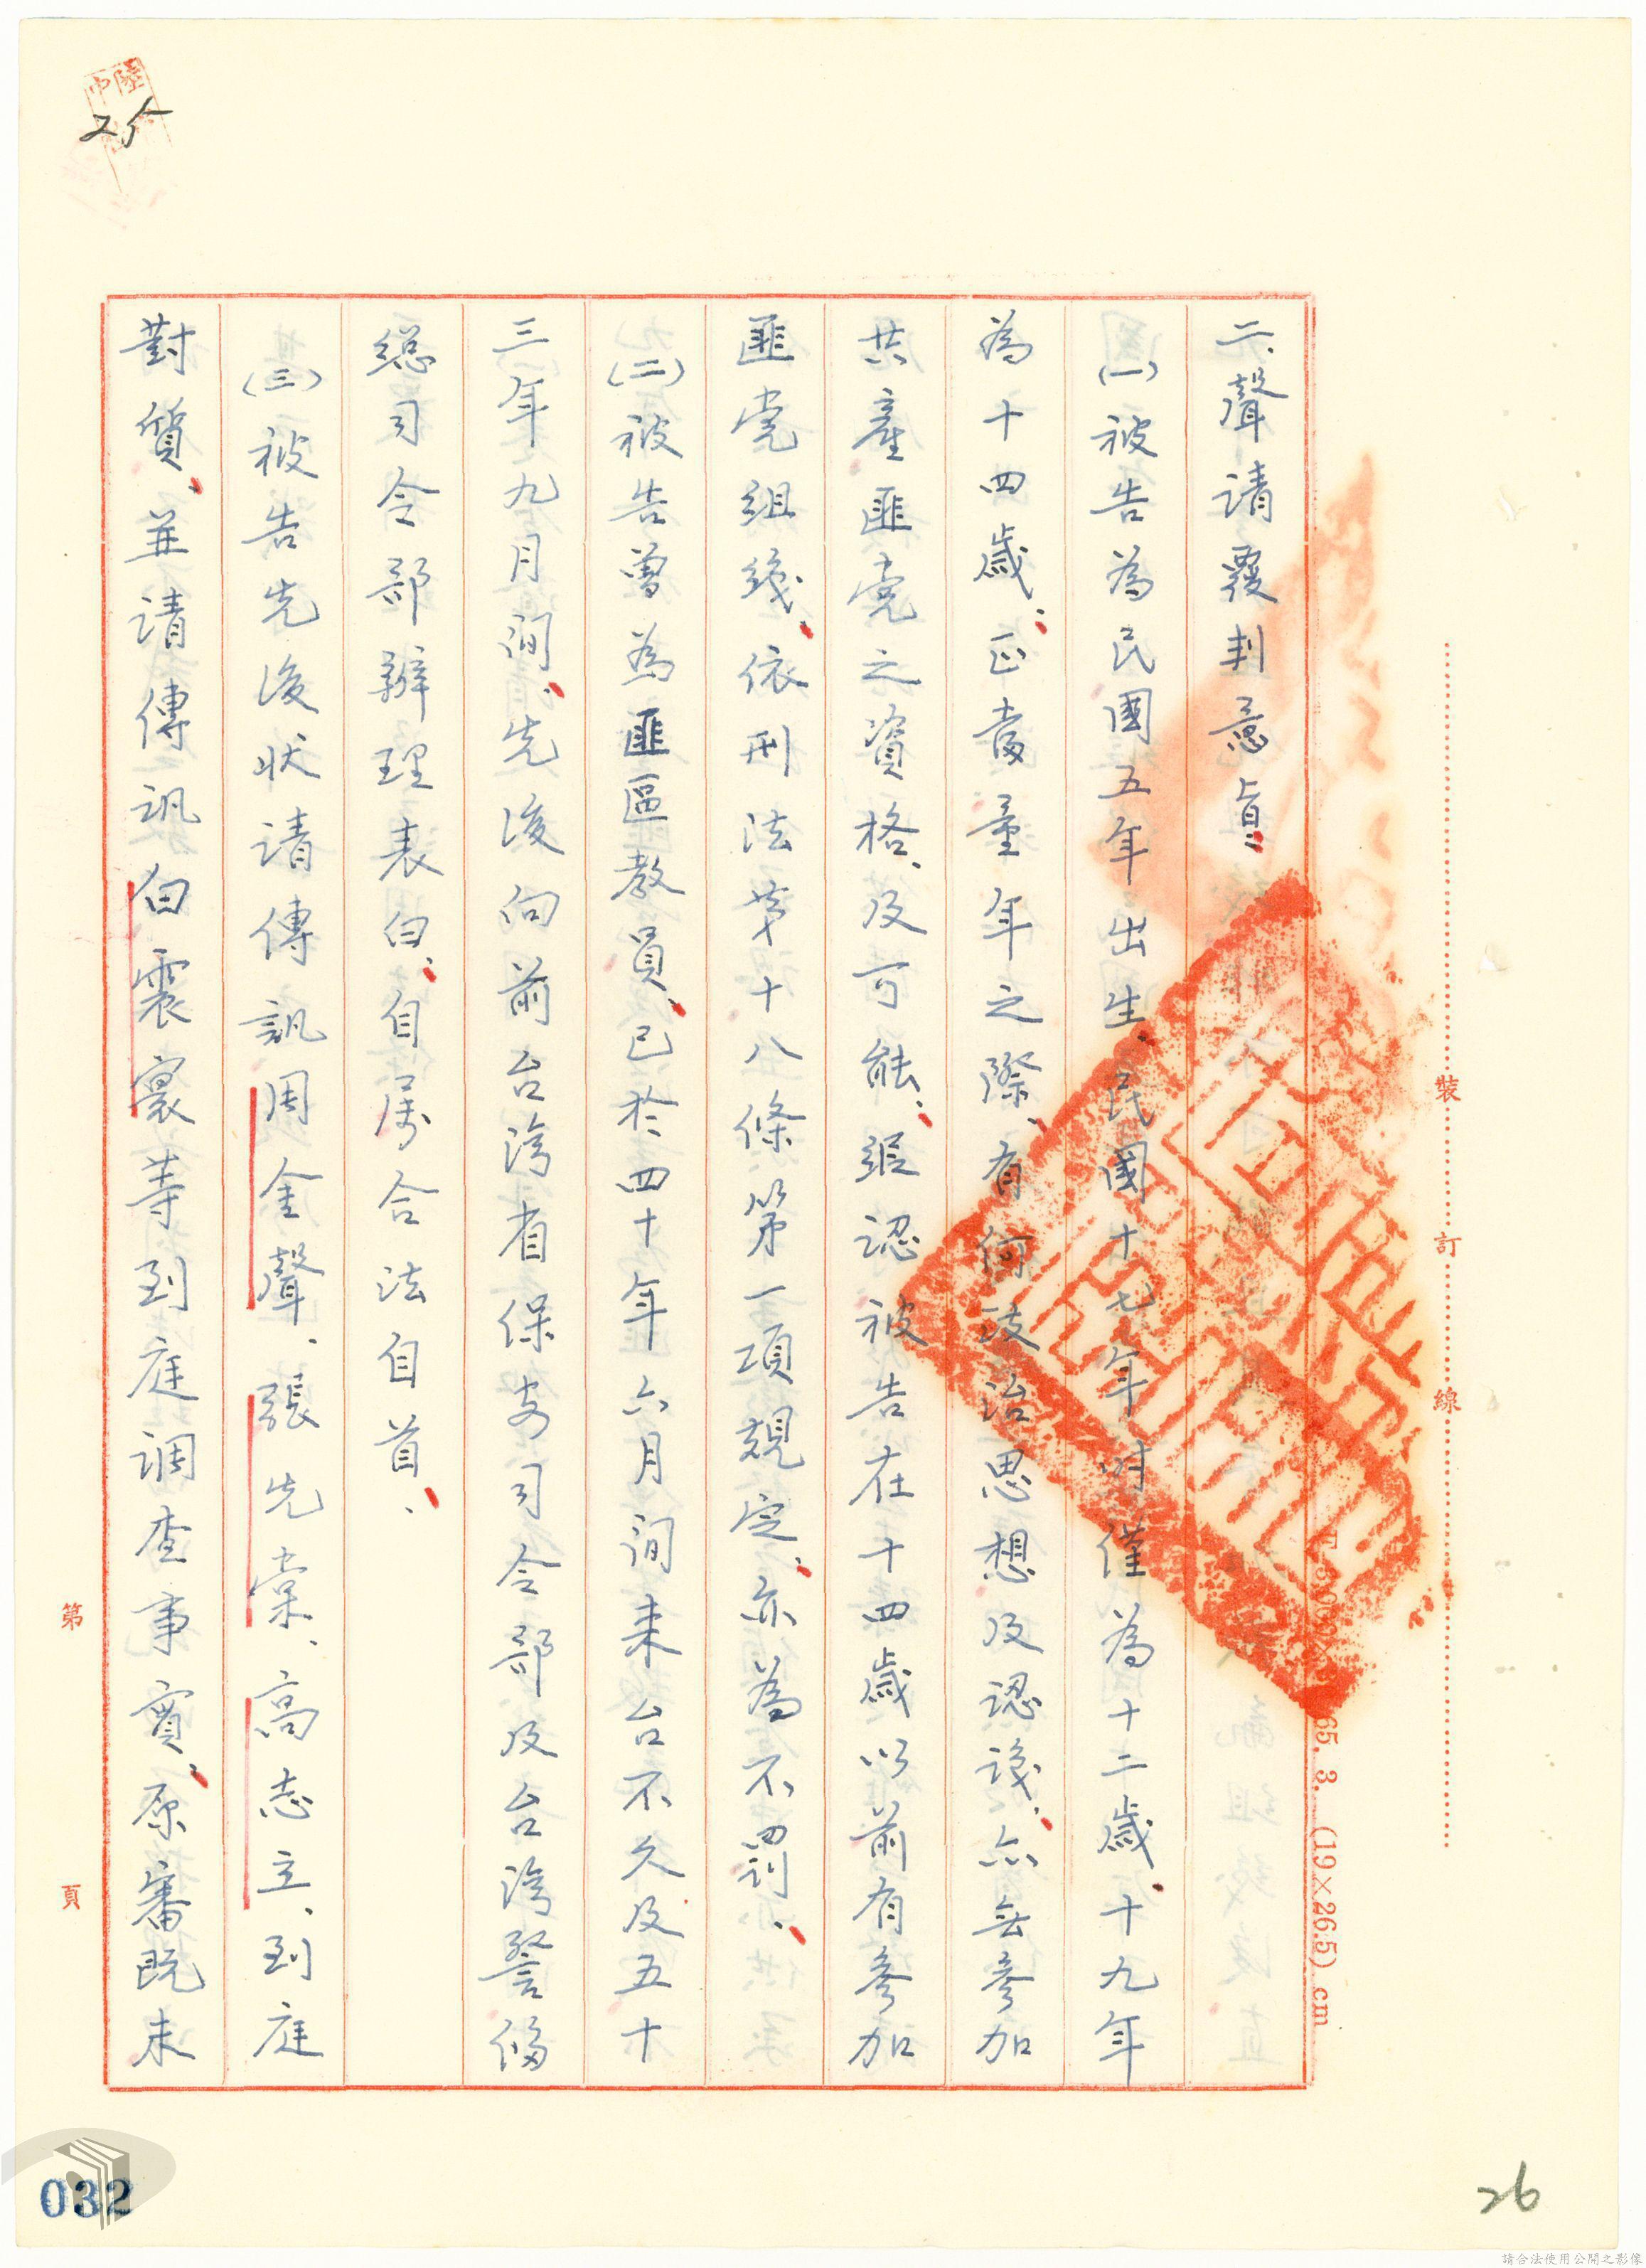 二、聲請覆判意旨：
(一)被告為民國五年出生、民國十七年時僅為十二歲、十九年
為十四歲、正當童年之際、有何政治思想及認識、亦無參加
共產匪党之資格、及可能、縱認被告在十四歲以前有參加
匪党組織、依刑法第十八條第一項規定、亦為不罰、
(二)被告曾為匪區教員、已於四十年六月間来台不久及五十
三年九月間、先後向前台湾省保安司令部及台湾警俻
總司令部辦理表白、自属合法自首、
(三)被告先後狀請傳訊周金聲、張先棠、高志立、到庭
對質、並請傳訊白震寰等到庭調查事實、原審既未
裝
訂
線
65. 3. (19×26.5) cm
第
頁
25
26
032
請合法使用公開之影像